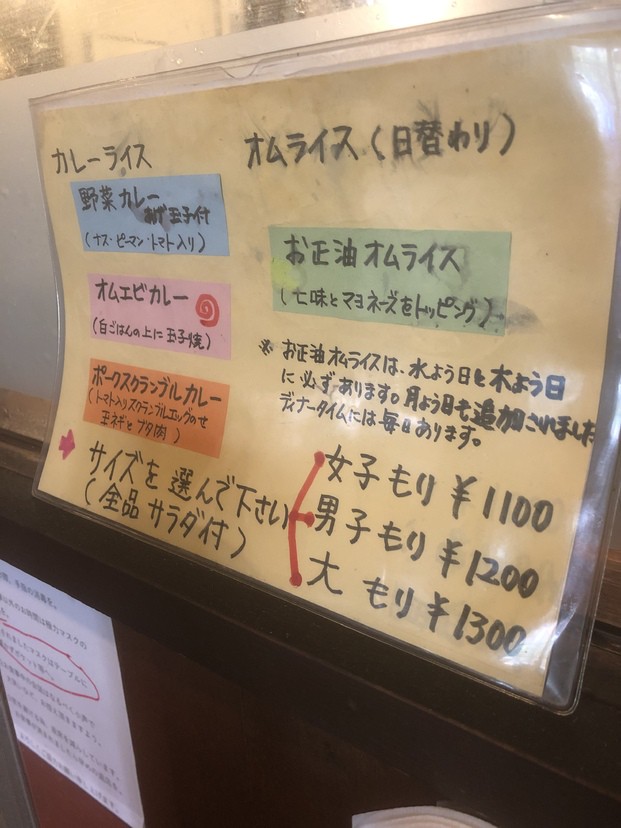 カレーライス
野菜カレー
あげ玉子付
(ナス・ピーマン・トマト入り)
オムエビカレー
(白ごはんの上に玉子焼)
ポークスクランブルカレー
(トマト入りスクランブルエッグのせ
玉ネギとブタ肉)
オムライス(日替わり)
お正油オムライス
(七味とマヨネーズをトッピング)
※ お正油オムライスは、水よう日と木よう日
に必ずあります。月よう日も追加ございました
ディナータイムには毎日あります。
サイズを選んで下さい
(全品サラダ付)
女子もり ¥1100
男子もり ¥1200
大もり ¥1300